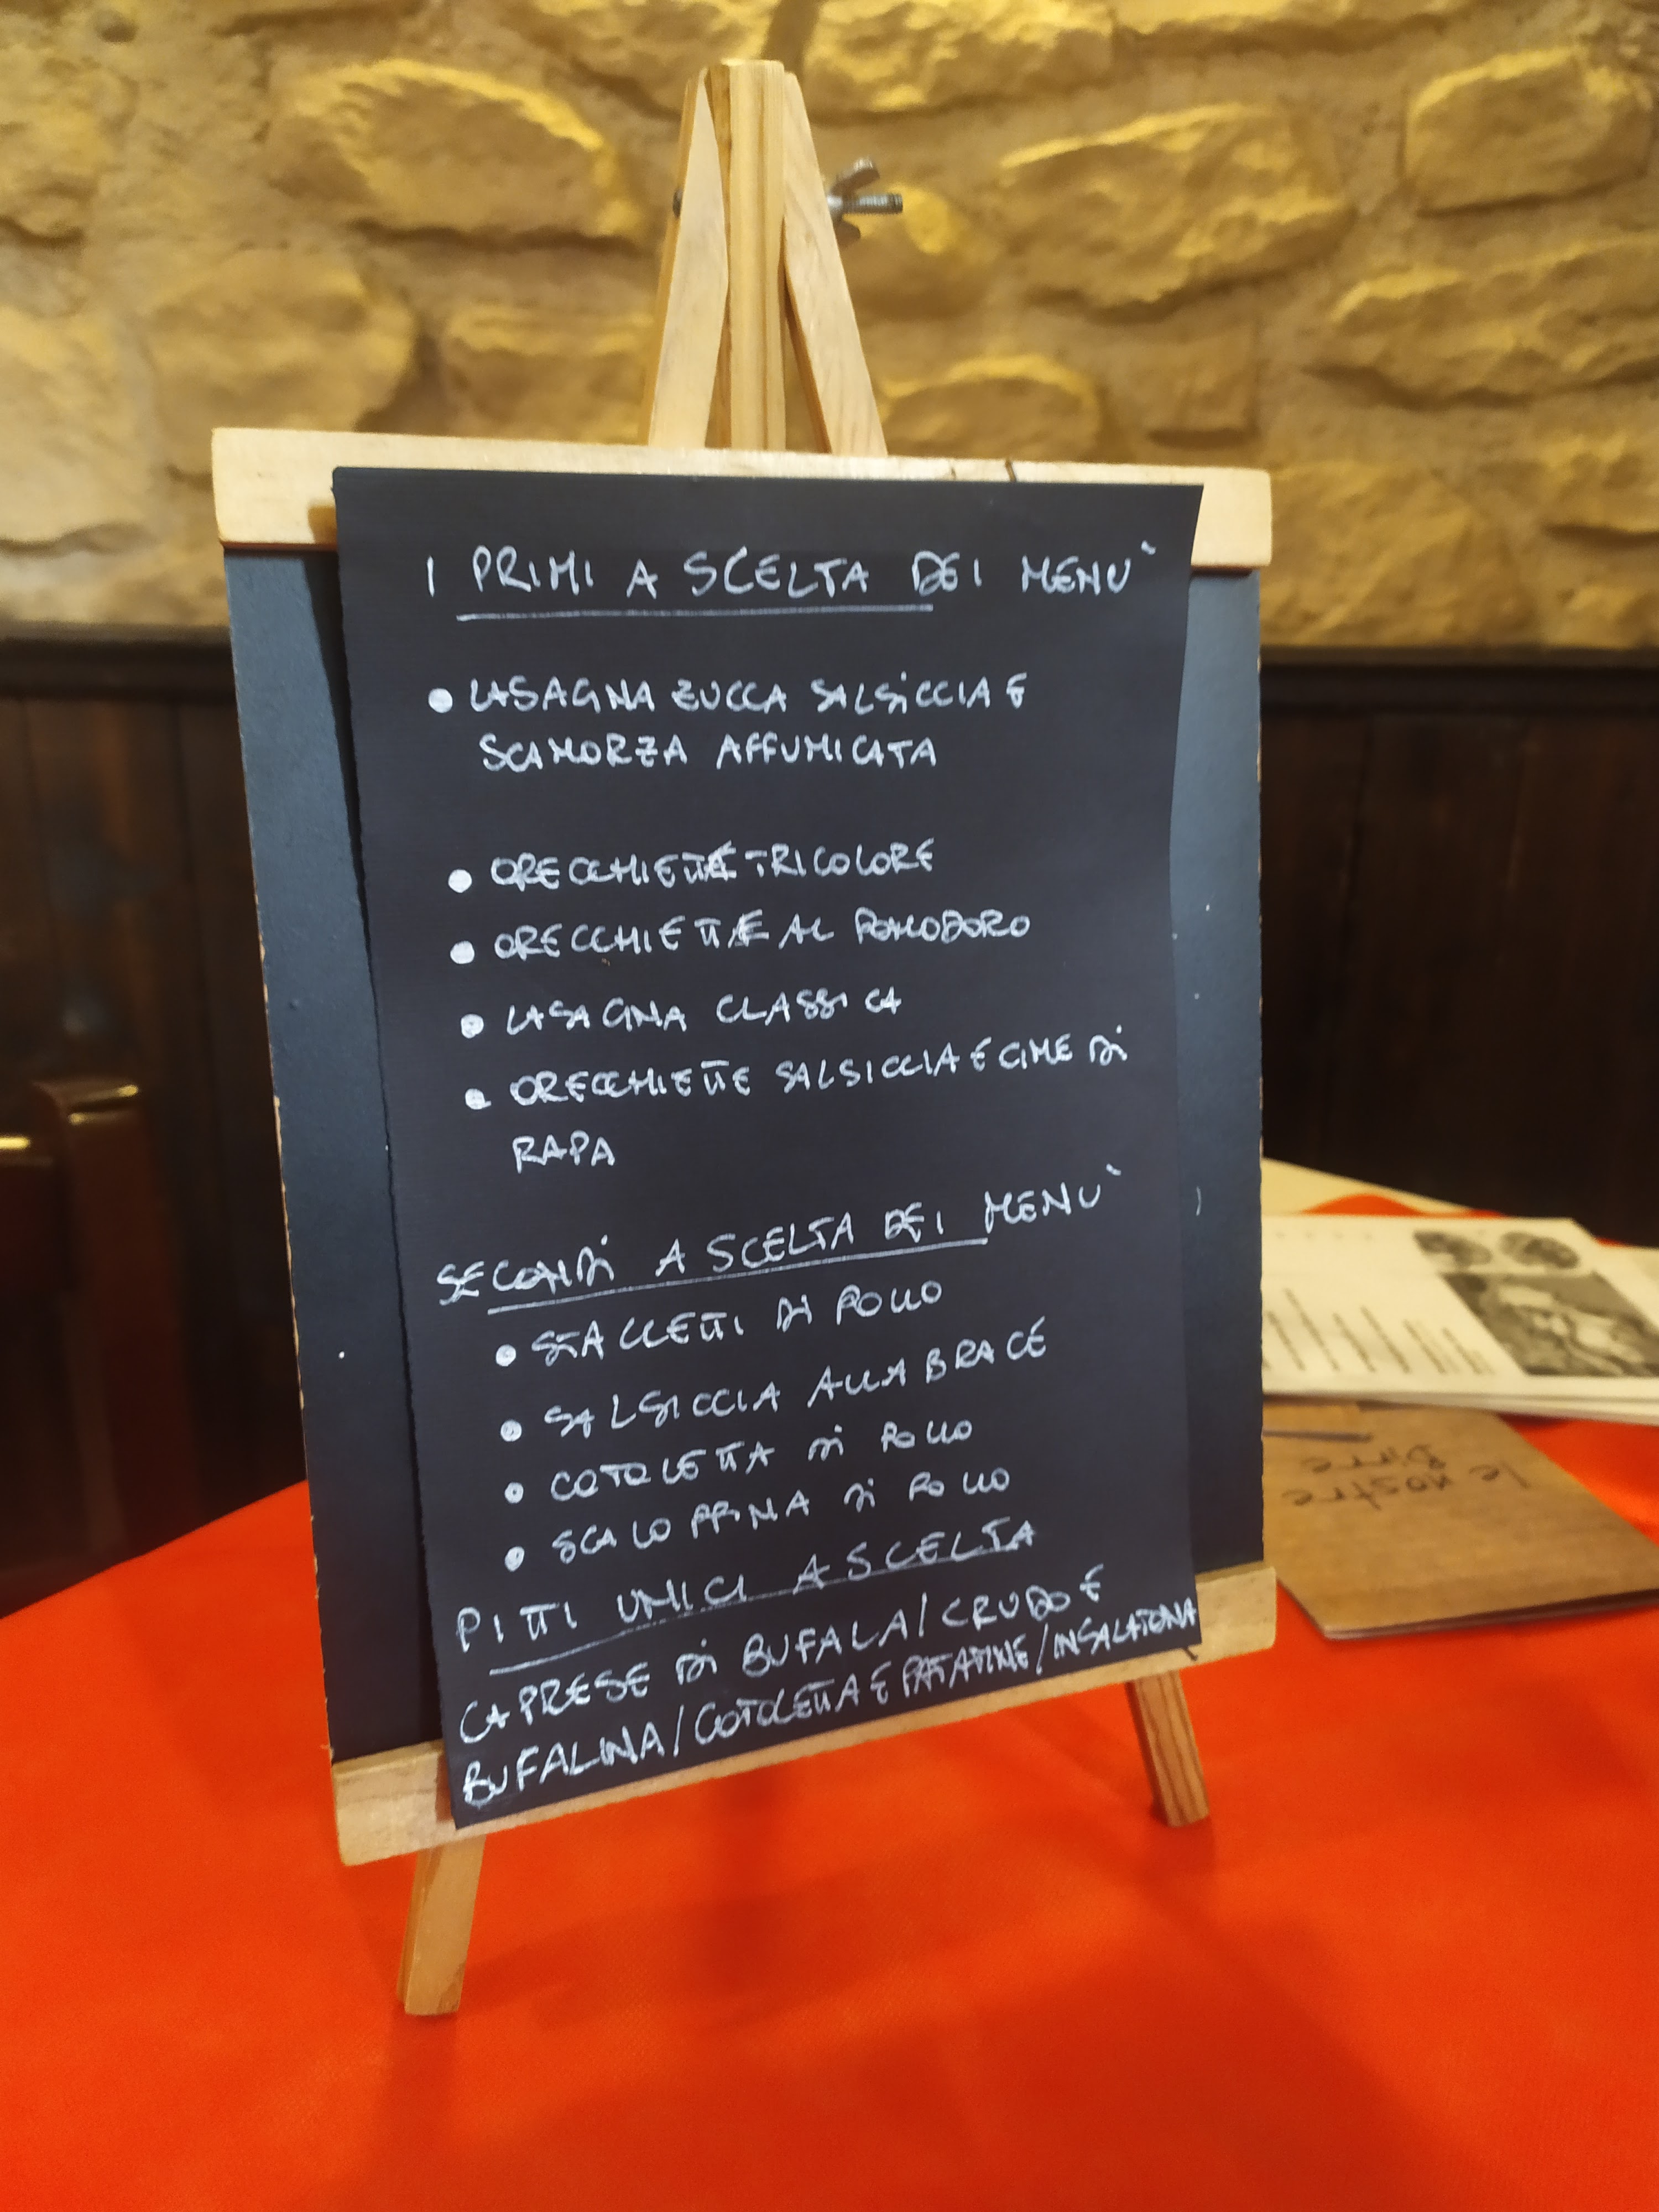 I PRIMI A SCELTA DEI MENU`
• LASAGNA ZUCCA SALSICCIA E
SCAMORZA AFFUMICATA
• ORECCHIETTE TRICOLORE
• ORECCHIETTE AL POMODORO
• LASAGNA CLASSICA
• ORECCHIETTE SALSICCIA E CIME DI
RAPA
SECONDI A SCELTA DEI MENU`
• STACCETTI DI POLLO
• SALSICCIA ALLA BRACE
• COTOLETTA DI POLLO
• SCALOPPINA DI POLLO
PITTI UNICI A SCELTA
CAPRESE DI BUFALA/CRUDO E
BUFALINA/COTOLETTA E PATATINE/INSALATONA
le nostre
Birre